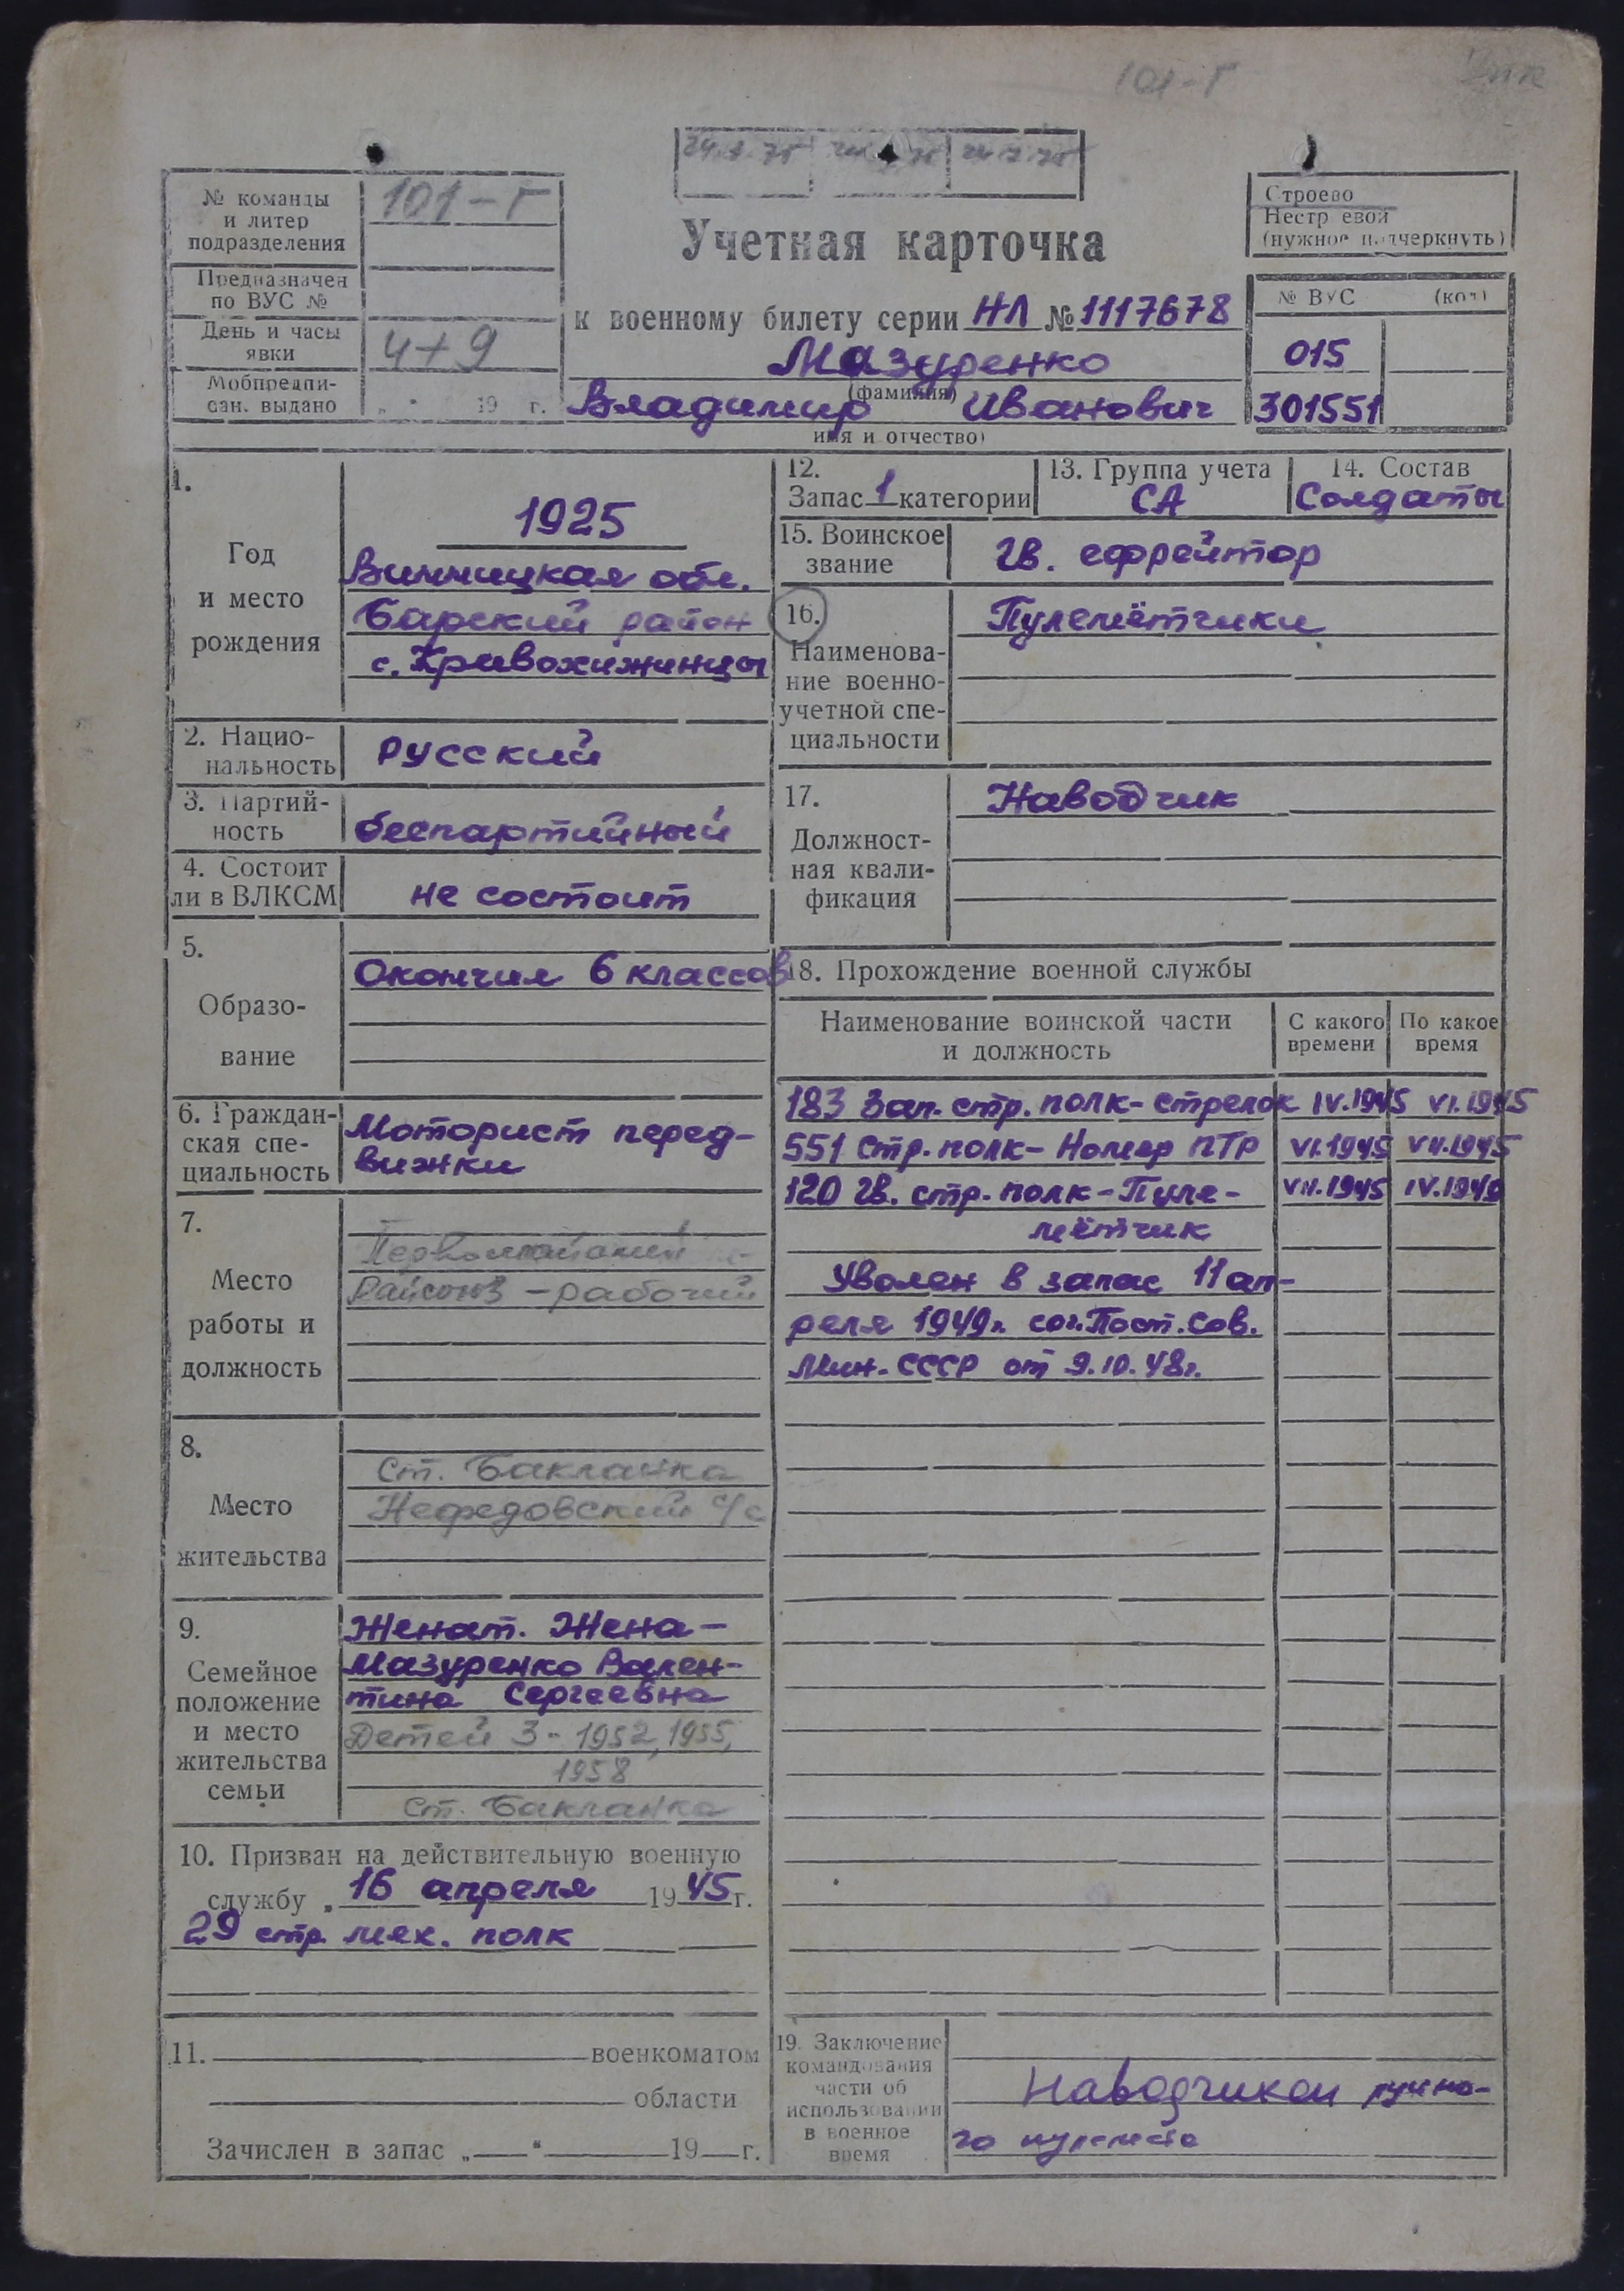 101-Г
24.7.75
№ команды
и литер
подразделения
101-Г
Предназначен
по ВУС №
День и часы
явки
4+9
Мобпредпи-
сан. выдано
„ “ 19 г.
Учетная карточка
к военному билету серии НЛ № 1117678
Мазуренко
(фамилия)
Владимир Иванович
имя и отчество)
Строево
Нестр евой
(нужное подчеркнуть)
№ ВУС (код)
015
301551
1.
Год
и место
рождения
1925
Винницкая обл.
Барский район
с. Кривохижинцы
2. Нацио-
нальность
русский
3. Партий-
ность
беспартийный
4. Состоит
ли в ВЛКСМ
не состоит
5.
Образо-
вание
Окончил 6 классов
6. Граждан-
ская спе-
циальность
Моторист перед-
вижки
7.
Место
работы и
должность
Первомайский
Райсоюз - рабочий
8.
Место
жительства
ст. Бакланка
Нефедовский с/с
9.
Семейное
положение
и место
жительства
семьи
Женат. Жена -
Мазуренко Вален-
тина Сергеевна
Детей 3 - 1952, 1955,
1958
ст. Бакланка
10. Призван на действительную военную
службу „ 16 апреля 1945 г.
29 стр. мех. полк
11. военкоматом
области
Зачислен в запас „ “ 19 г.
12.
Запас 1 категории
13. Группа учета
СА
14. Состав
Солдаты
15. Воинское
звание
Гв. ефрейтор
16.
Наименова-
ние военно-
учетной спе-
циальности
Пулемётчики
17.
Должност-
ная квали-
фикация
Наводчик
18. Прохождение военной службы
Наименование воинской части
и должность
С какого
времени
По какое
время
183 Зап. стр. полк - стрелок IV.1945 VI.1945
551 стр. полк - Номер ПТР VI.1945 VII.1945
120 Гв. стр. полк - Пуле- VII.1945 IV.1949
мётчик
Уволен в запас 11 ап-
реля 1949 г. сог. Пост. Сов.
Мин. СССР от 9.10.48 г.
19. Заключение
командования
части об
использовании
в военное
время
Наводчиком ручно-
го пулемета